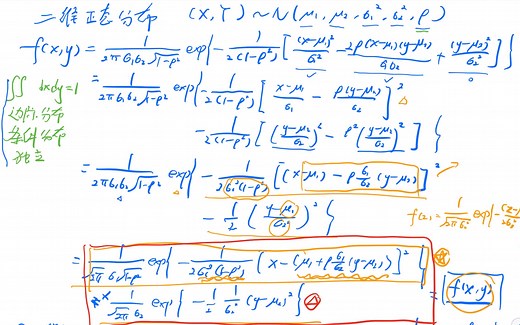 二维正态分布 (X,Y) ~ N(μ₁, μ₂, σ₁², σ₂², ρ)
f(x,y) = 1/(2πσ₁σ₂√(1-ρ²)) exp{ -1/(2(1-ρ²)) [ (x-μ₁)²/σ₁² - 2ρ(x-μ₁)(y-μ₂)/(σ₁σ₂) + (y-μ₂)²/σ₂² ] }
∬ dxdy = 1
边缘分布
条件分布
独立
= 1/(2πσ₁σ₂√(1-ρ²)) exp{ -1/(2(1-ρ²)) [ (x-μ₁)/σ₁ - ρ(y-μ₂)/σ₂ ]²
- 1/(2(1-ρ²)) [ ((y-μ₂)/σ₂)² - ρ²((y-μ₂)/σ₂)² ] }
= 1/(2πσ₁σ₂√(1-ρ²)) exp{ -1/(2σ₁²(1-ρ²)) [ (x-μ₁) - ρ σ₁/σ₂ (y-μ₂) ]²
- 1/2 ((y-μ₂)/σ₂)² }
= 1/(√2π σ₁√(1-ρ²)) exp{ -1/(2σ₁²(1-ρ²)) [ x - (μ₁ + ρ σ₁/σ₂ (y-μ₂)) ]² }
exp{ -1/2 1/σ₂² (y-μ₂)² } = f(x,y)